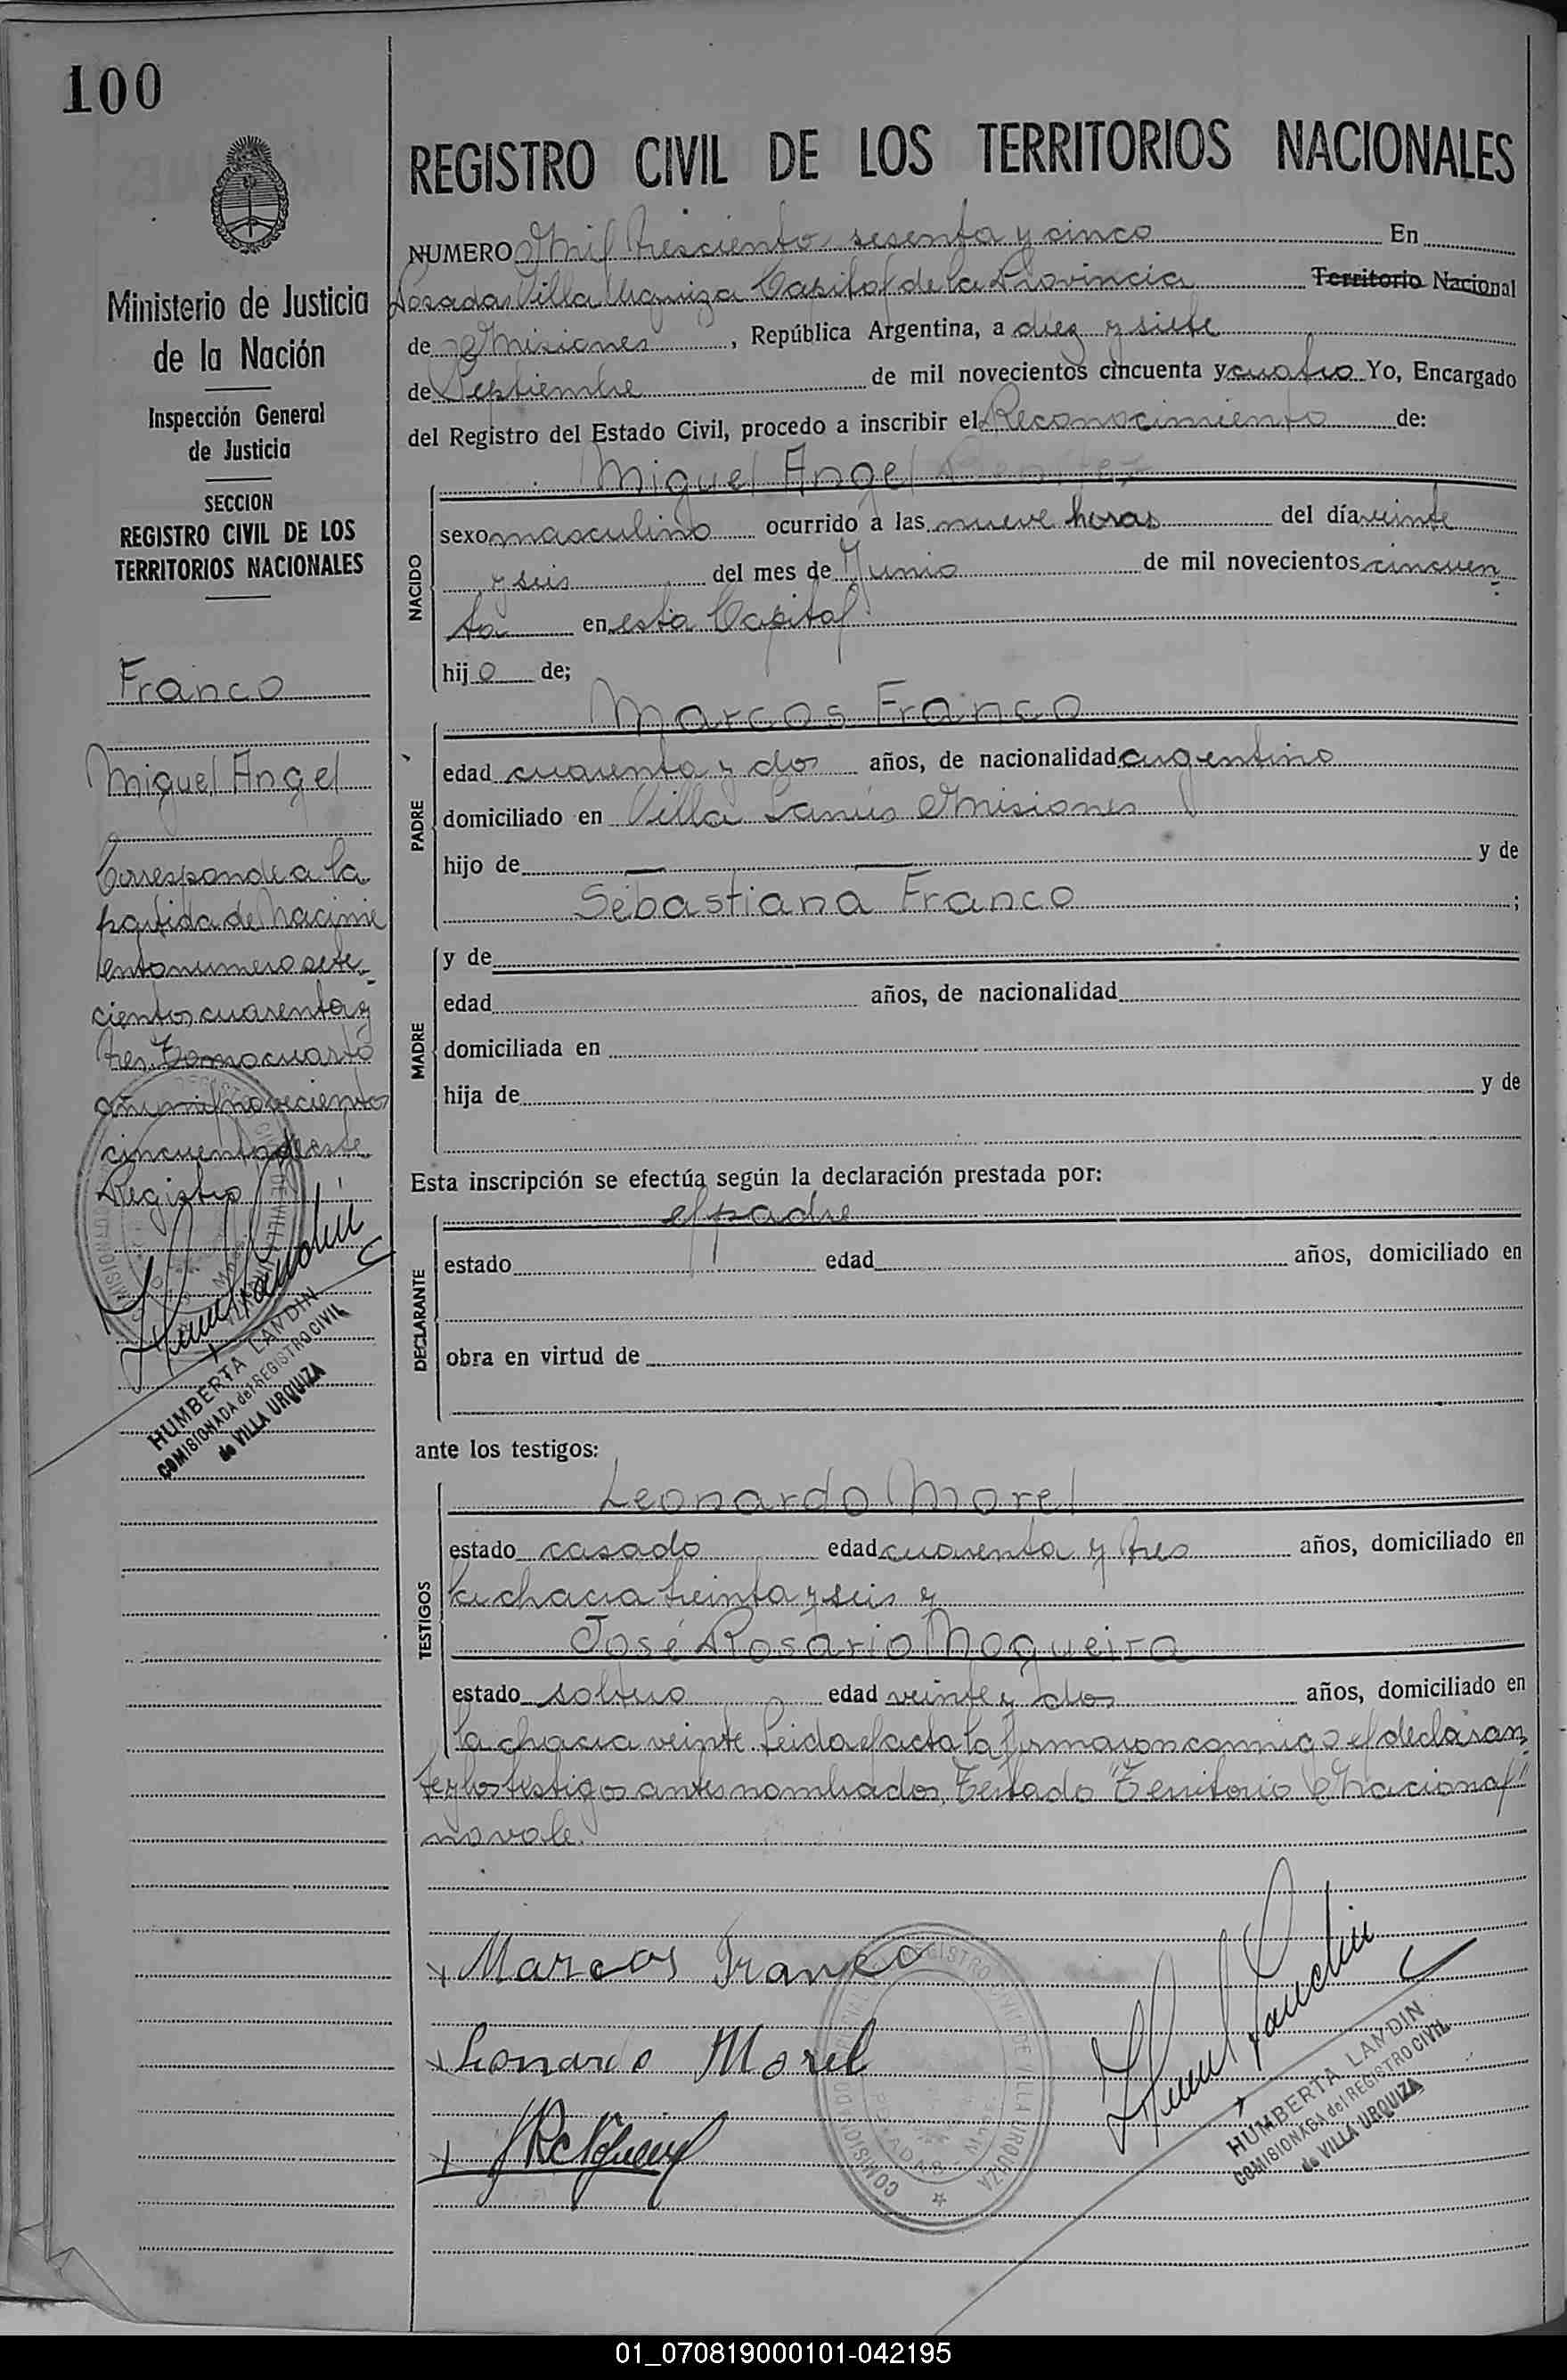 100
REGISTRO CIVIL DE LOS TERRITORIOS NACIONALES
Ministerio de Justicia
de la Nación
Inspección General
de Justicia
SECCION
REGISTRO CIVIL DE LOS
TERRITORIOS NACIONALES
Franco
Miguel Angel
Corresponde a la
partida de Nacimie
ento numero sete-
cientos cuarenta y
tres Tomo cuarto
año mil novecientos
cincuenta de este
Registro
HUMBERTA LANDIN
COMISIONADA del REGISTRO CIVIL
de VILLA URQUIZA
NUMERO Mil tresciento sesenta y cinco En
Posadas Villa Urquiza Capital de la Provincia Territorio Nacional
de Misiones, República Argentina, a diez y siete
de Septiembre de mil novecientos cincuenta y cuatro Yo, Encargado
del Registro del Estado Civil, procedo a inscribir el Reconocimiento de:
Miguel Angel
NACIDO
sexo masculino ocurrido a las nueve horas del día veinte
y seis del mes de Junio de mil novecientos cincuen
ta en esta Capital
hijo de;
Marcos Franco
PADRE
edad cuarenta y dos años, de nacionalidad argentino
domiciliado en Villa Lanús Misiones
hijo de — — y de
Sebastiana Franco ;
MADRE
y de
edad años, de nacionalidad
domiciliada en
hija de y de
Esta inscripción se efectúa según la declaración prestada por:
el padre
DECLARANTE
estado edad años, domiciliado en
obra en virtud de
ante los testigos:
Leonardo Morel
TESTIGOS
estado casado edad cuarenta y tres años, domiciliado en
la chacra treinta y seis y
José Rosario Nogueira
estado soltero edad veinte y dos años, domiciliado en
la chacra veinte. Leida el acta la firmaron conmigo el declaran
te y los testigos antes nombrados, Testado "Territorio Nacional"
no vale.
Marcos Franco
Leonardo Morel
COMISIONADO REGISTRO CIVIL DE VILLA URQUIZA
POSADAS - Mnes.
HUMBERTA LANDIN
COMISIONADA del REGISTRO CIVIL
de VILLA URQUIZA
01_070819000101-042195